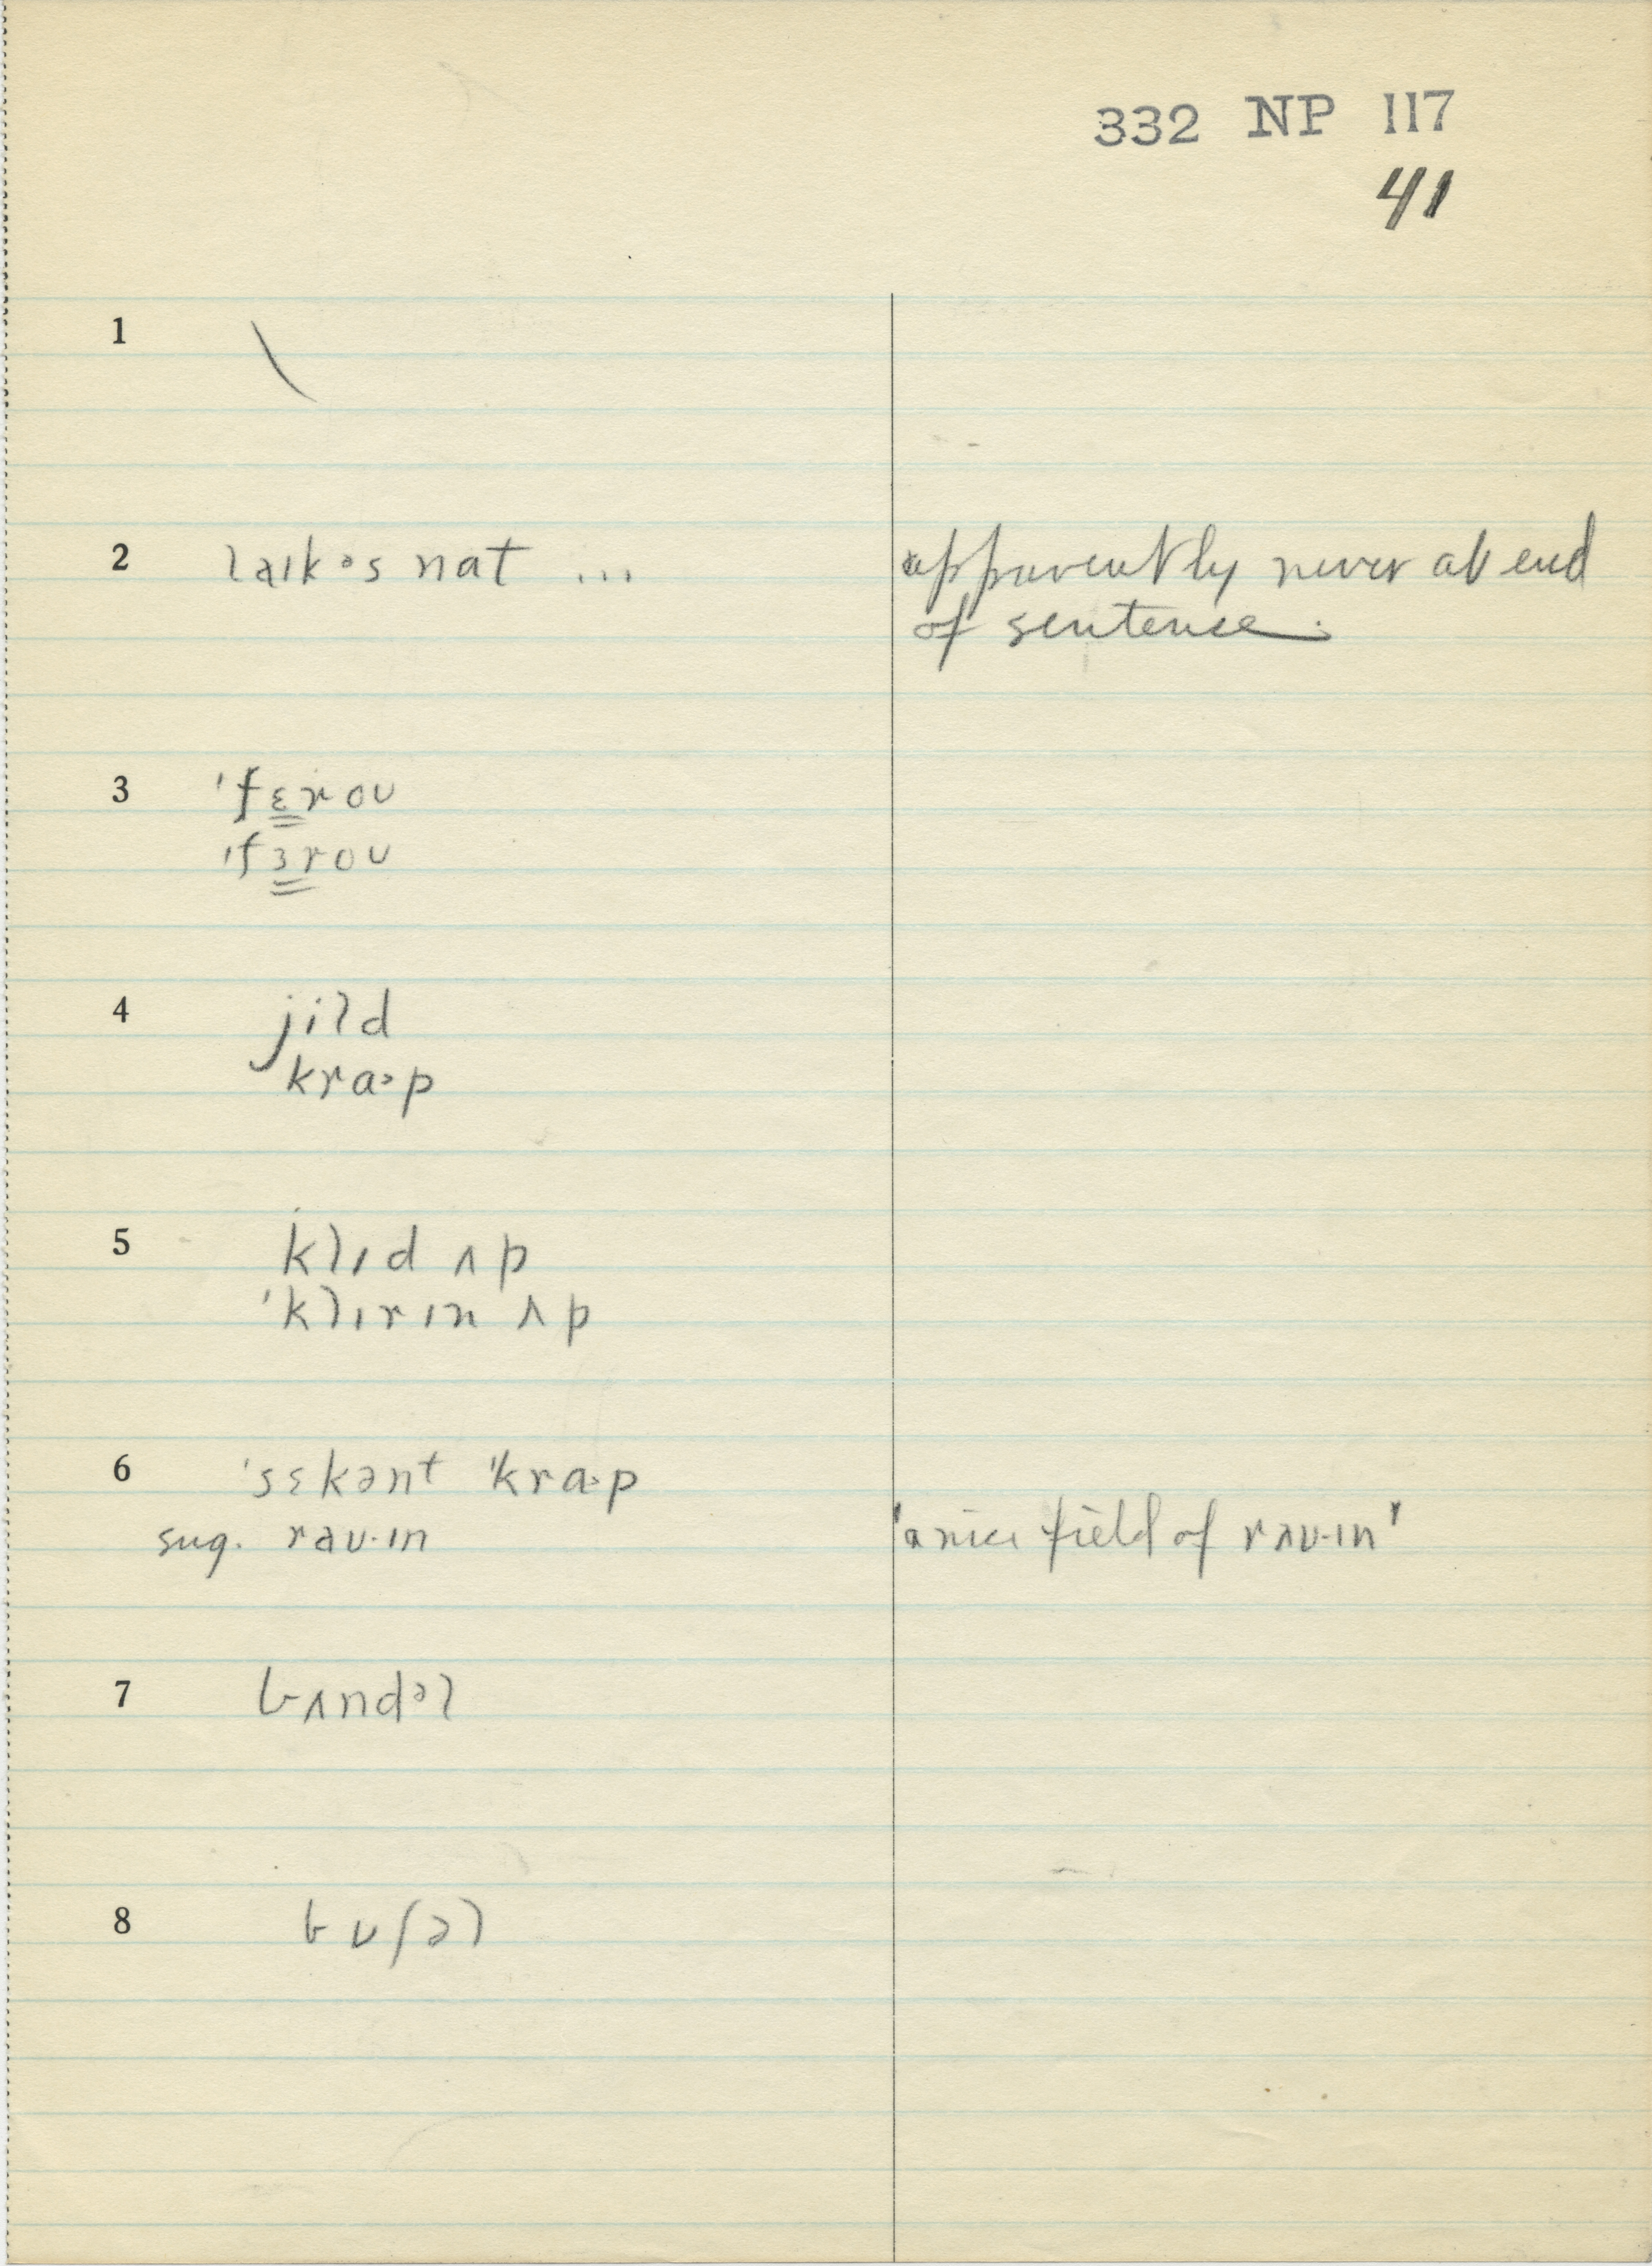 332 NP 117
41
1 \
2 laɪkəs nat ... apparently never at end
of sentence.
3 'fɛroʊ
'fɜroʊ
4 jild
kraəp
5 klɪd ʌp
'klɪrɪn ʌp
6 'sɛkənt 'kraəp
sug. raʊ·ɪn 'a nice field of rʌʊ·ɪn'
7 bʌndəl
8 bʊʃəl